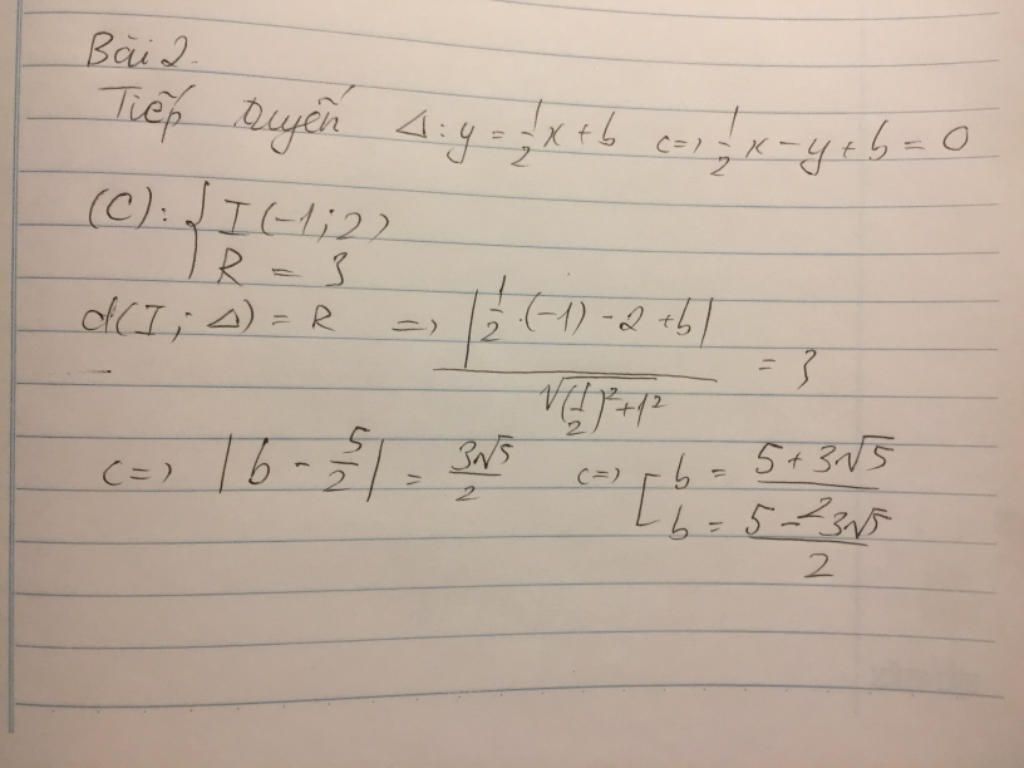 Bài 2.
Tiếp tuyến Δ: y = 1/2 x + b <=> 1/2 x - y + b = 0
(C): { I (-1; 2)
R = 3
d(I; Δ) = R => |1/2 . (-1) - 2 + b| / √((1/2)² + 1²) = 3
<=> |b - 5/2| = 3√5/2 <=> [ b = (5 + 3√5)/2
b = (5 - 3√5)/2